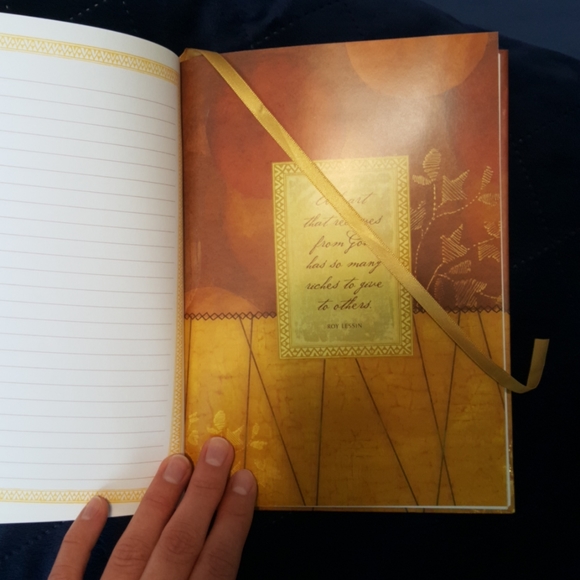 that receives
from God
has so many
riches to give
to others.
ROY LESSIN